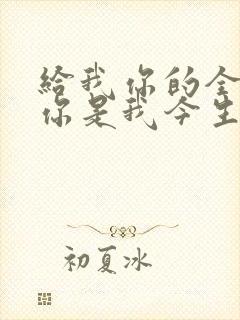 給我你的全
你是我今生
初夏冰